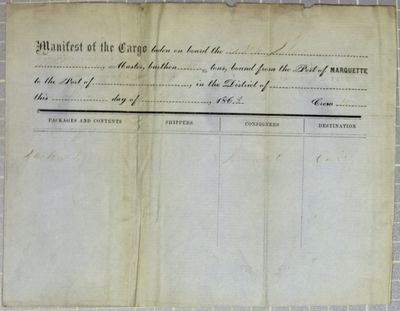 Manifest of the Cargo taken on board the
, Master, burthen tons, bound from the Port of MARQUETTE
to the Port of , in the District of
this day of , 186 Crew
PACKAGES AND CONTENTS SHIPPERS CONSIGNEES DESTINATION